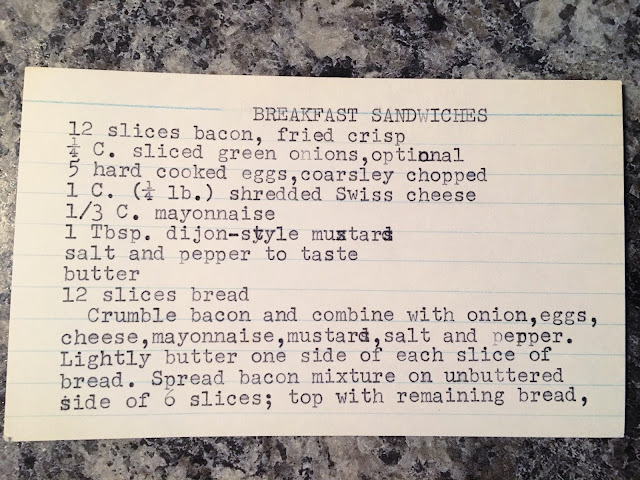 BREAKFAST SANDWICHES
12 slices bacon, fried crisp
¼ C. sliced green onions,optional
5 hard cooked eggs,coarsley chopped
1 C. (¼ lb.) shredded Swiss cheese
1/3 C. mayonnaise
1 Tbsp. dijon-style mustard
salt and pepper to taste
butter
12 slices bread
Crumble bacon and combine with onion,eggs,
cheese,mayonnaise,mustard,salt and pepper.
Lightly butter one side of each slice of
bread. Spread bacon mixture on unbuttered
side of 6 slices; top with remaining bread,